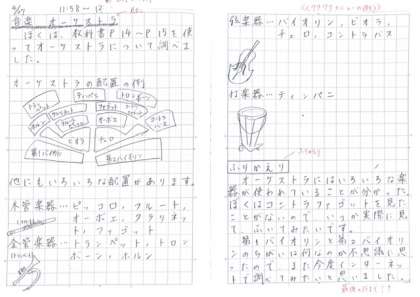 音楽 オーケストラ
ぼくは、教科書P14〜P15を使
ってオーケストラについて調べま
した。
オーケストラの配置の例
ティンパニ
トランペット
トロンボーン
ホルン
クラリネット
ファゴット
フルート
オーボエ
コントラバス
ビオラ
チェロ
第1バイオリン
第2バイオリン
他にもいろいろな配置があります。
木管楽器…ピッコロ、フルート、
オーボエ、クラリネッ
ト、ファゴット
金管楽器…トランペット、トロン
ボーン、ホルン
弦楽器…バイオリン、ビオラ、
チェロ、コントラバス
打楽器…ティンパニ
ふりかえり
オーケストラにはいろいろな楽
器が使われていることが分かった。
ぼくはコントラファゴットを見た
ことがないので、いつか実際に見
てふいてみたいです。
第1バイオリンと第2バイオリ
ンのちがいは何なのか不思議に思
ったので、また今度インターネッ
トで調べてみたいと思いました。